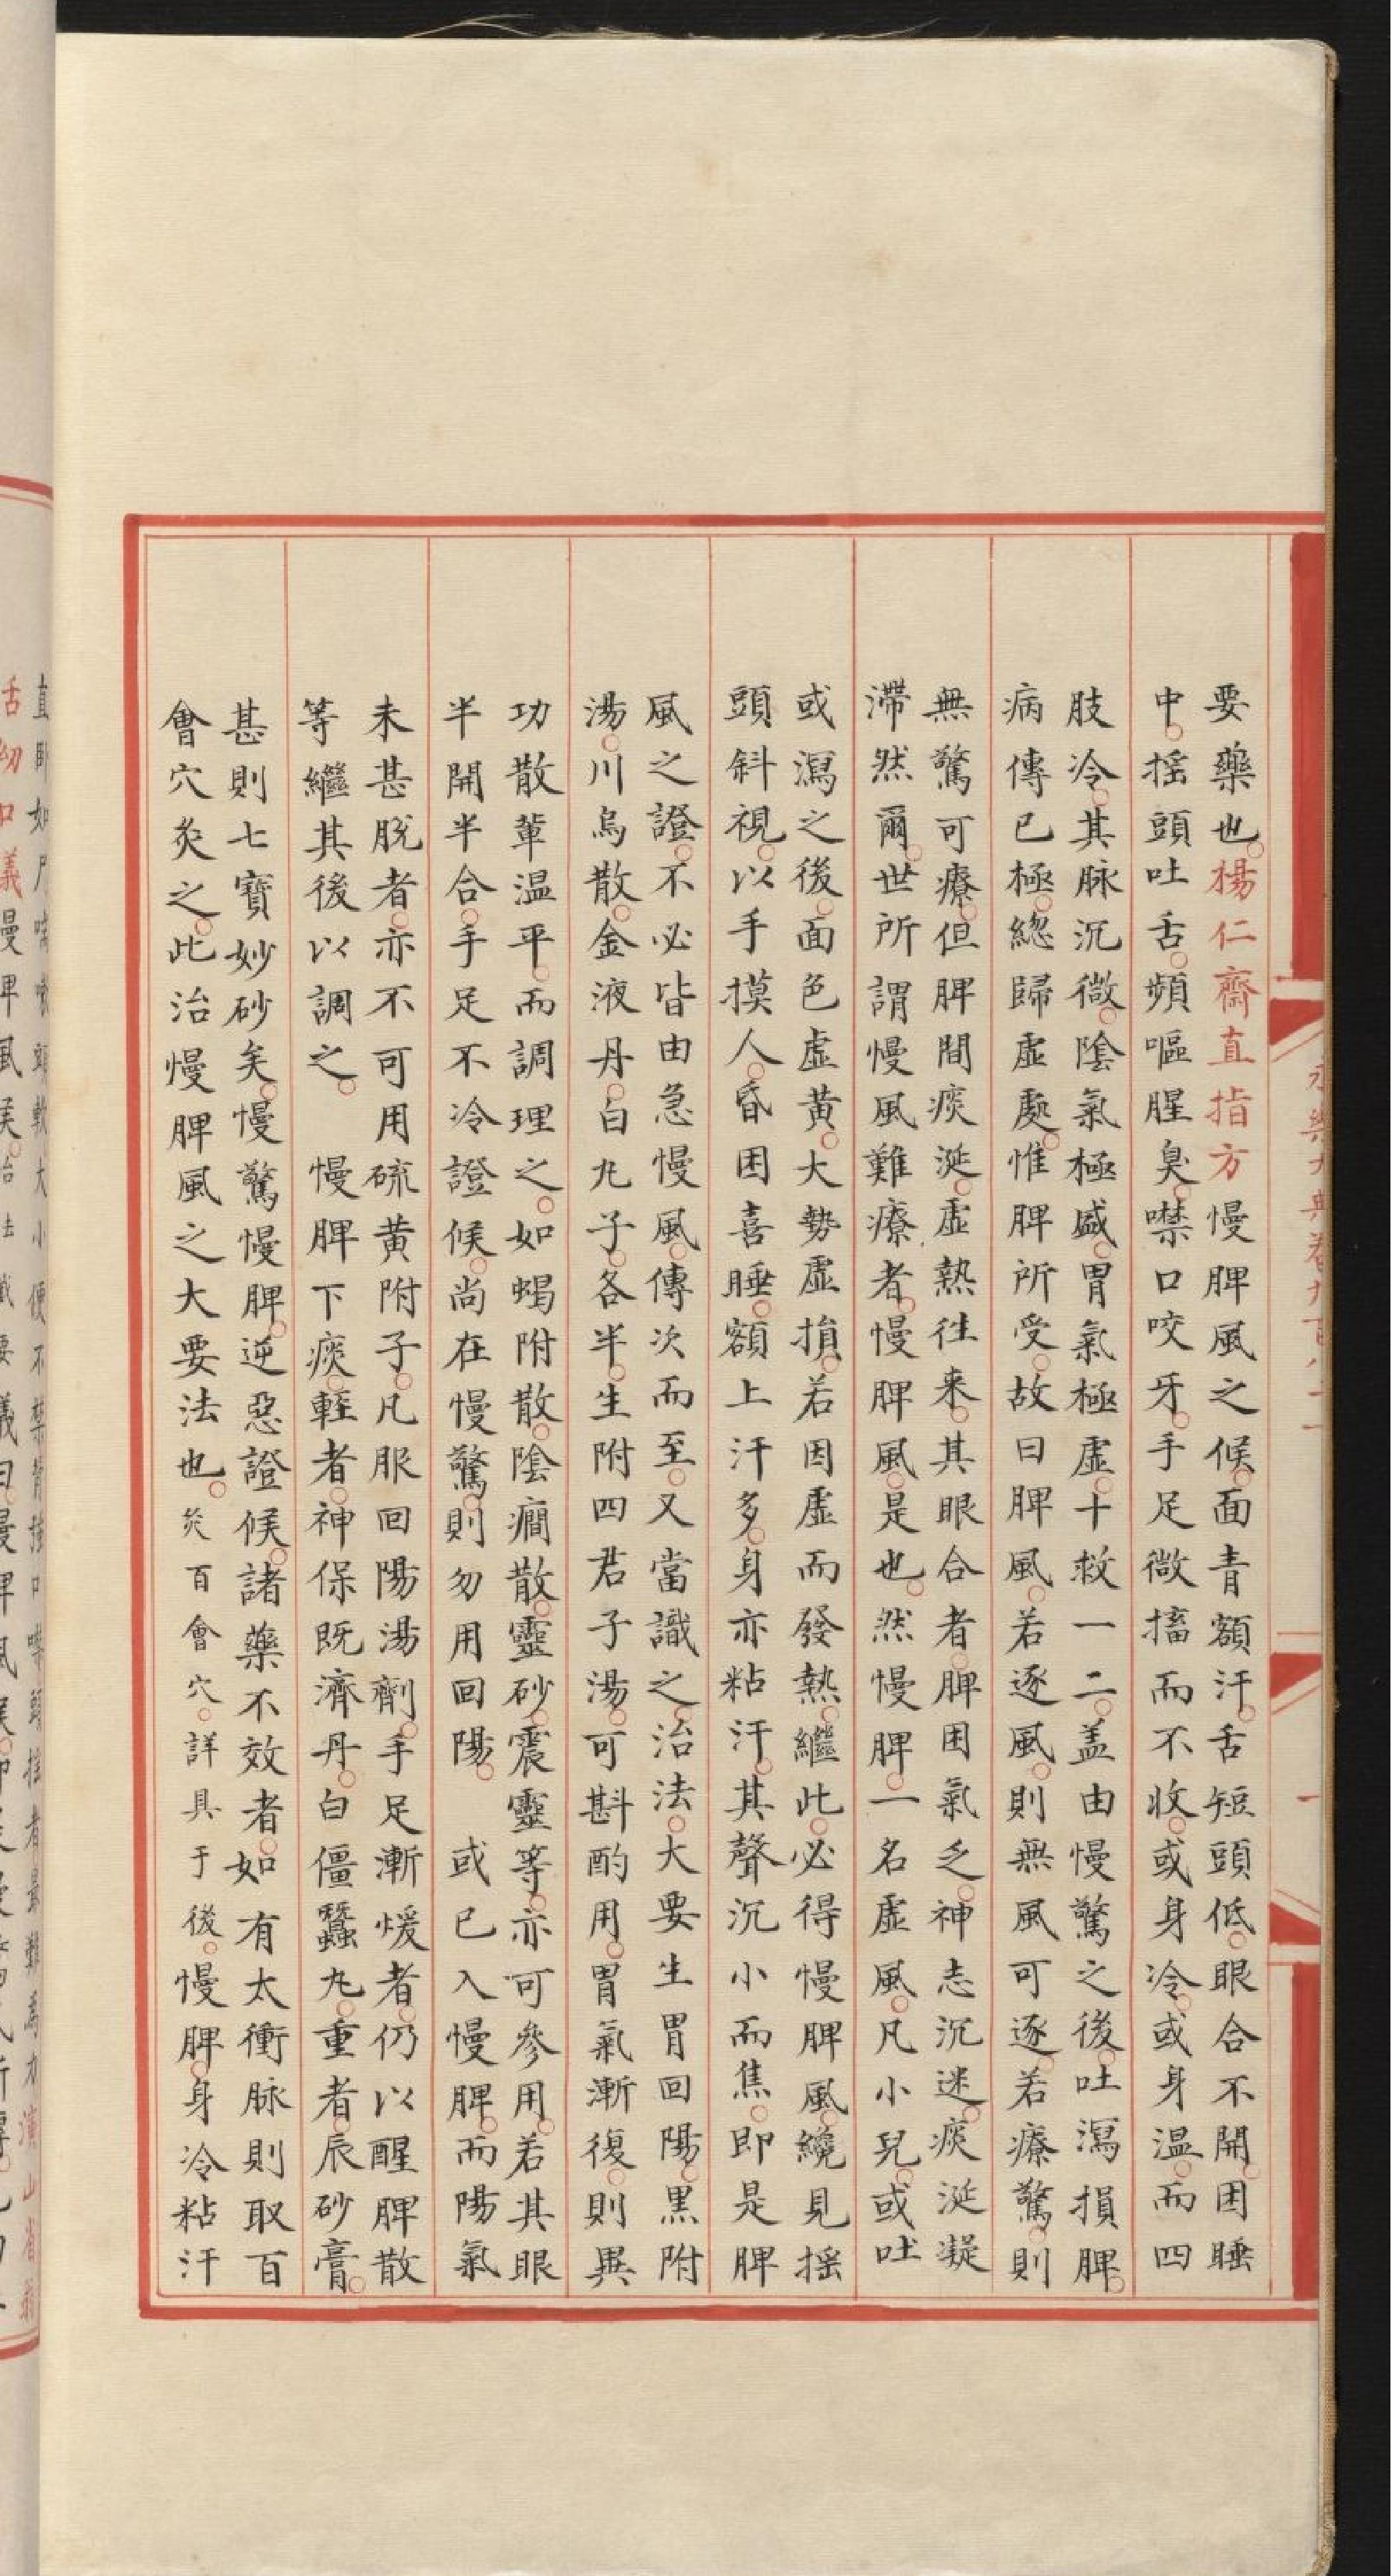 要藥也。楊仁齋直指方慢脾風之候。面青額汗。舌短頭低。眼合不開。困睡
中。揺頭吐舌。頻嘔腥臭。噤口咬牙。手足微搐而不收。或身冷。或身温。而四
肢冷。其脉沉微。隂氣極盛。胃氣極虛。十救一二。盖由慢驚之後。吐瀉損脾。
病傳已極。緫歸虛處。惟脾所受。故曰脾風。若逐風。則無風可逐。若療驚。則
無驚可療。但脾間痰涎。虛熱往来。其眼合者。脾困氣乏。神志沉迷。痰涎凝
滯然爾。世所謂慢風難療者。慢脾風。是也。然慢脾。一名虛風。凡小兒。或吐
或瀉之後。面色虛黃。大勢虛損。若因虛而發熱。繼此。必得慢脾風。纔見揺
頭斜視。以手摸人。昏困喜睡。額上汗多。身亦粘汗。其聲沉小而焦。即是脾
風之證。不必皆由急慢風。傳次而至。又當識之。治法。大要生胃回陽。黑附
湯。川烏散。金液丹。白丸子。各半。生附四君子湯。可斟酌用。胃氣漸復。則異
功散軰温平。而調理之。如蝎附散。隂癎散。靈砂。震靈等。亦可參用。若其眼
半開半合。手足不冷證候。尚在慢驚。則勿用回陽。 或已入慢脾。而陽氣
未甚脫者。亦不可用硫黄附子。凡服回陽湯劑。手足漸煖者。仍以醒脾散
等繼其後以調之。 慢脾下痰。輕者。神保既濟丹。白僵蠶丸。重者。辰砂膏。
甚則七寶妙砂矣。慢驚慢脾。逆惡證候。諸藥不效者。如有太衝脉則取百
會穴灸之。此治慢脾風之大要法也。灸百會穴。詳具于後。慢脾。身冷粘汗